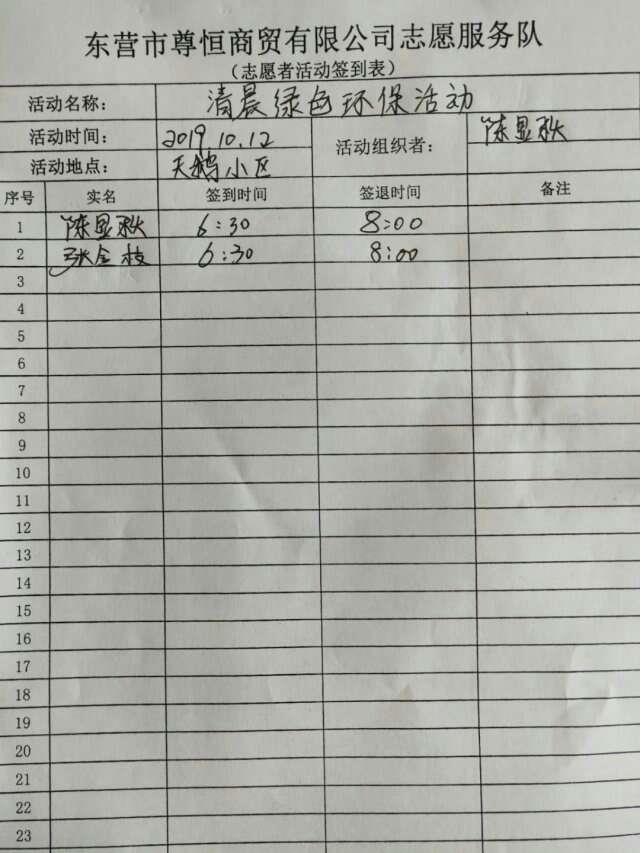 东营市尊恒商贸有限公司志愿服务队
（志愿者活动签到表）
活动名称： 清晨绿色环保活动
活动时间： 2019.10.12 活动组织者： 陈显秋
活动地点： 天鹅小区
序号 实名 签到时间 签退时间 备注
1 陈显秋 6:30 8:00
2 张全枝 6:30 8:00
3
4
5
6
7
8
9
10
11
12
13
14
15
16
17
18
19
20
21
22
23